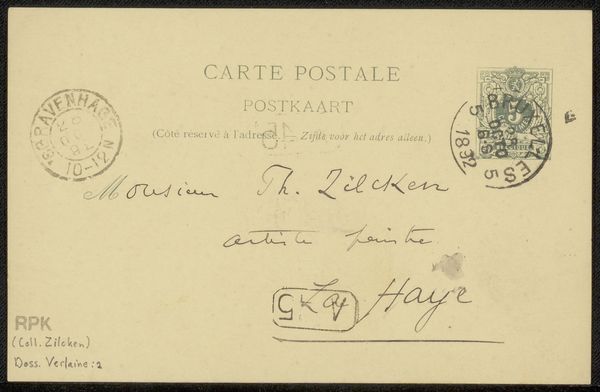 CARTE POSTALE
POSTKAART
(Côté réservé à l'adresse. — Zijde voor het adres alleen.)
'SGRAVENHAGE
10-12N
BRUXELLES 5
5
1892
Monsieur Th. Zilcken
artiste peintre
La Haye
A 5
RPK
(Coll. Zilcken)
Doss. Verlaine: 2